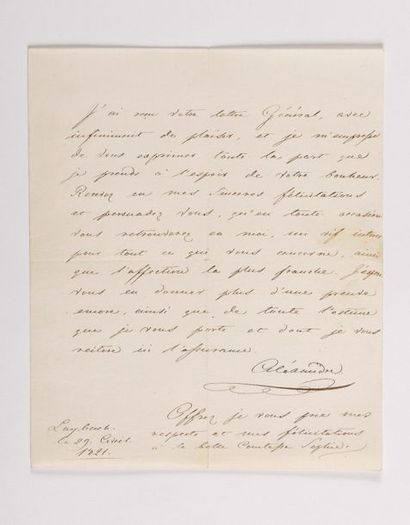 J'ai reçu votre lettre Général, avec
infiniment de plaisir, et je m'empresse
de vous exprimer toute la part que
je prends à l'espoir de votre bonheur.
Recevez en mes sincères félicitations
et persuadez vous, qu'en toute occasion
vous retrouverez en moi, un vif intérêt
pour tout ce qui vous concerne, ainsi
que l'affection la plus franche. J'espère
vous en donner plus d'une preuve
encore, ainsi que de toute l'estime
que je vous porte et dont je vous
réitère ici l'assurance.
Aléxandre
Offrez je vous prie mes
respects et mes félicitations
à la belle Comtesse Sophie.
Laybach.
le 29. Avril.
1821.